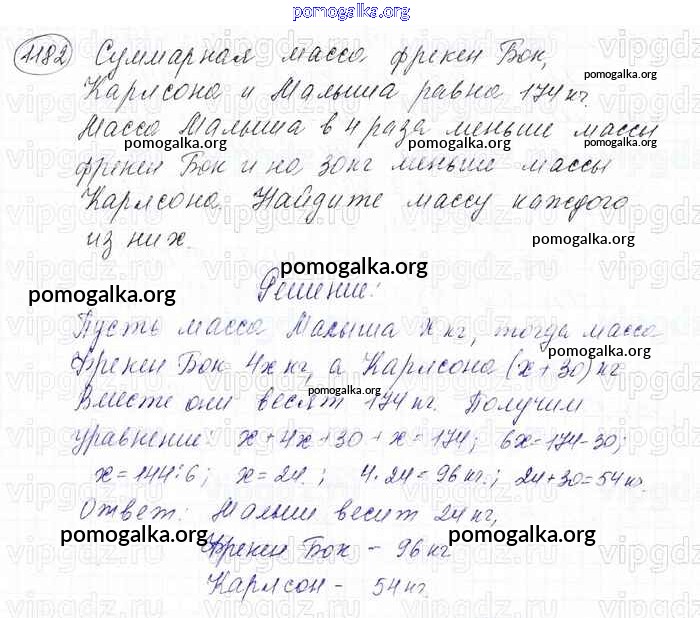 pomogalka.org
1182 Суммарная масса фрекен Бок,
Карлсона и Малыша равна 174 кг.
Масса Малыша в 4 раза меньше массы
фрекен Бок и на 30 кг меньше массы
Карлсона. Найдите массу каждого
из них.
Решение:
Пусть масса Малыша x кг, тогда масса
Фрекен Бок 4x кг, а Карлсона (x+30) кг
Вместе они весят 174 кг. Получим
уравнение: x+4x+30+x=174; 6x=174-30;
x=144:6; x=24.; 4·24=96 кг.; 24+30=54 кг.
Ответ: Малыш весит 24 кг,
Фрекен Бок - 96 кг
Карлсон - 54 кг.
pomogalka.org
pomogalka.org
pomogalka.org
pomogalka.org
pomogalka.org
pomogalka.org
pomogalka.org
pomogalka.org
pomogalka.org
pomogalka.org
pomogalka.org